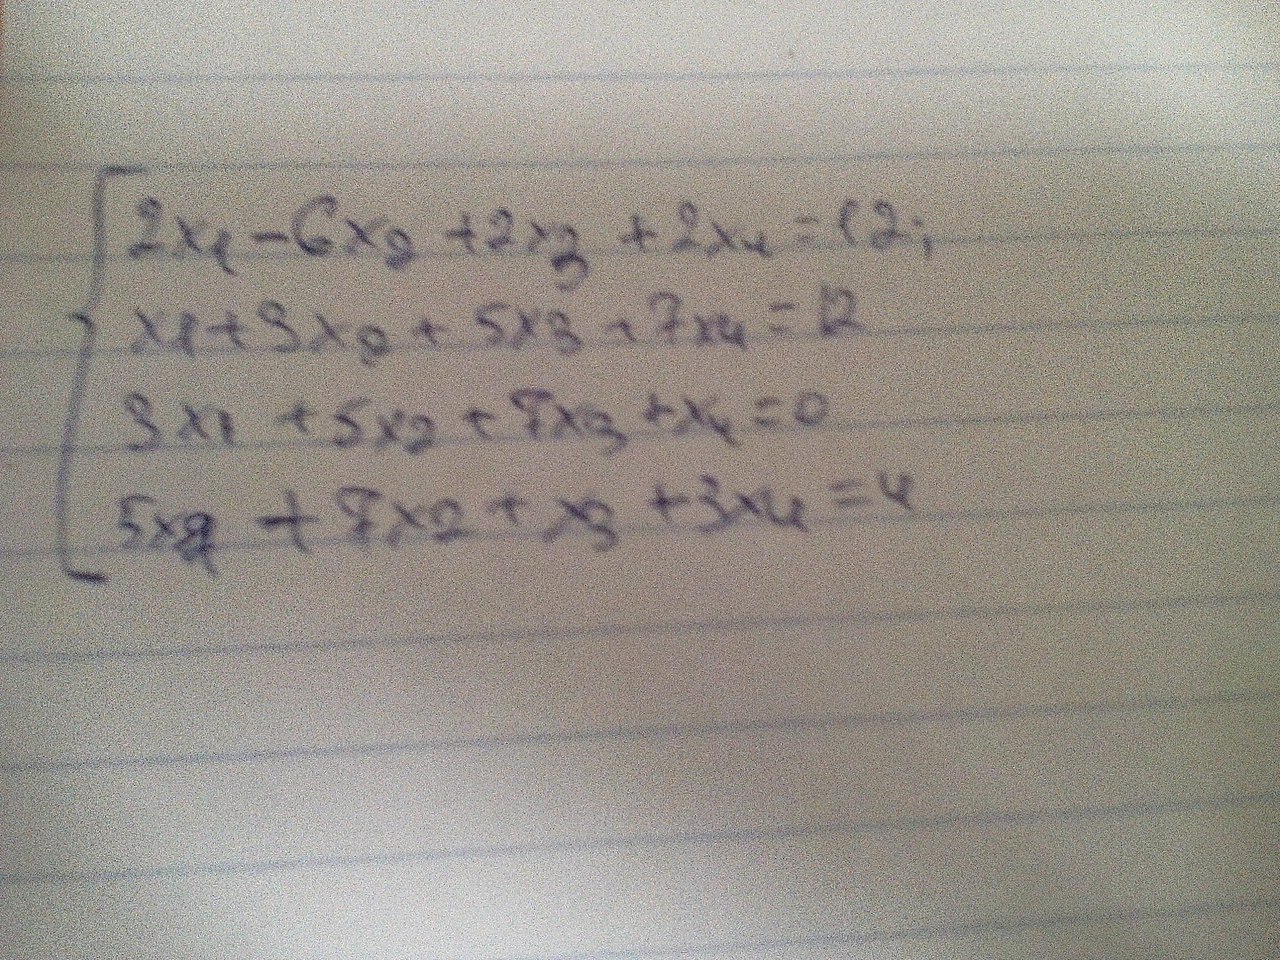 2x₁-6x₂+2x₃+2x₄=12;
x₁+3x₂+5x₃+7x₄=12
3x₁+5x₂+7x₃+x₄=0
5x₁+7x₂+x₃+3x₄=4